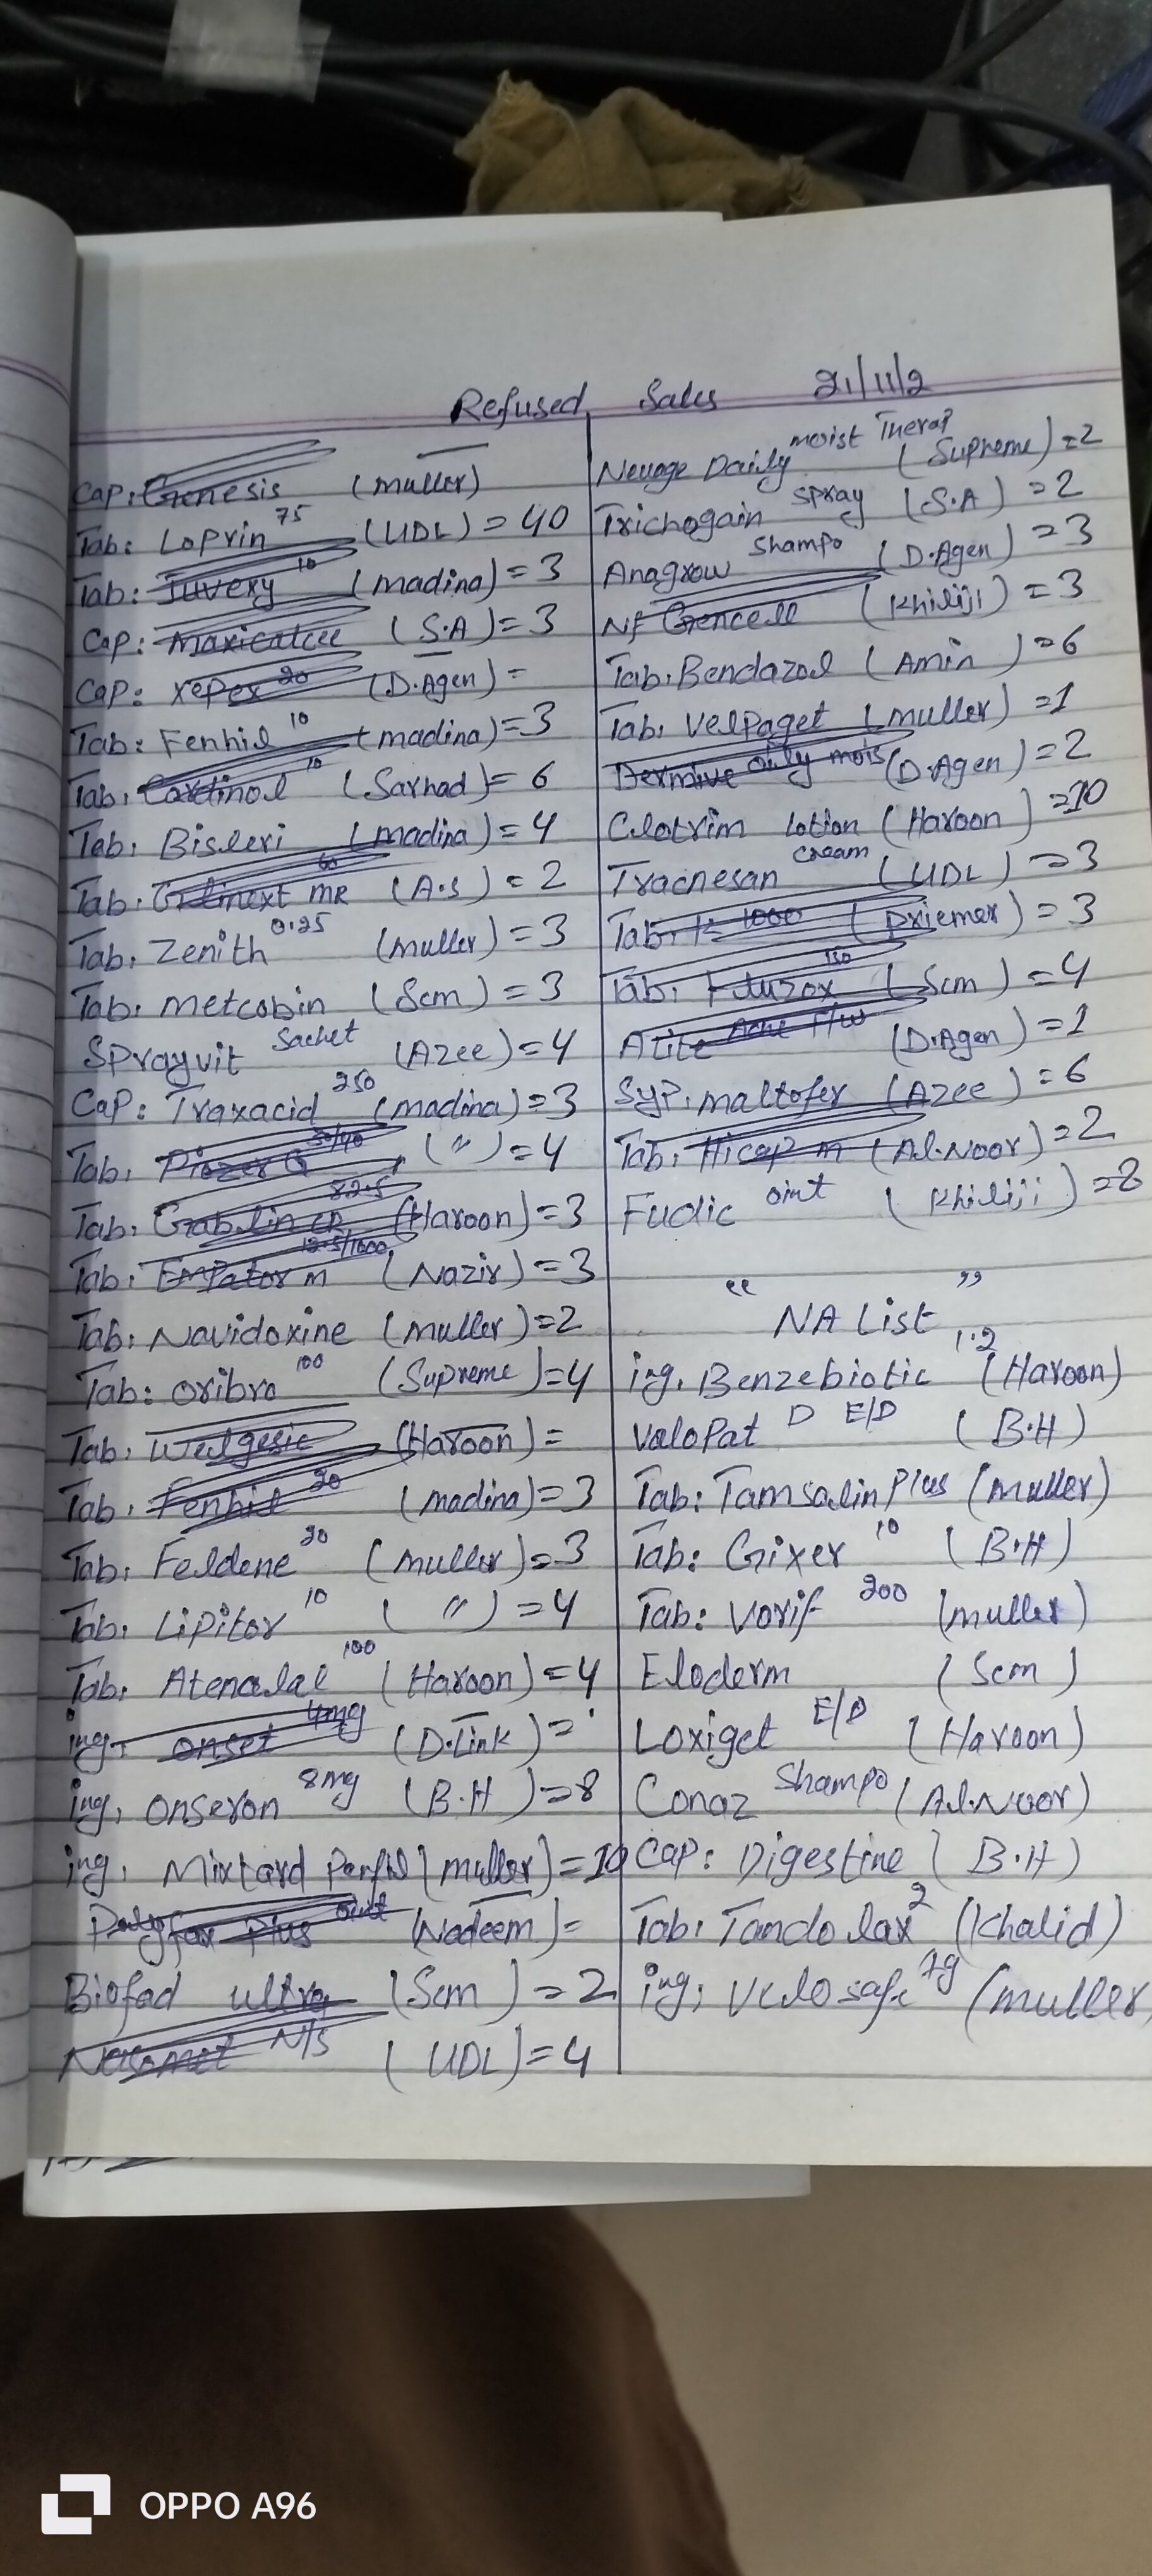 Refused Sales 21/11/2
Cap: Genesis (muller)
Tab: Loprin 75 (UDL) = 40
Tab: Juvery 10 (madina) = 3
Cap: Maxicalcee (S.A) = 3
Cap: Xepex 20 (D.Agen) =
Tab: Fenhil 10 (madina) = 3
Tab: Cardinol 10 (Sarhad) = 6
Tab: Bisleri (madina) = 4
Tab: MR 60 (A.S) = 2
Tab: Zenith 0.25 (muller) = 3
Tab: Metcobin (Scm) = 3
Sprayvit Sachet (Azee) = 4
Cap: Traxacid 250 (madina) = 3
Tab: Piozer G 30/40 (〃) = 4
Tab: Gabulin CR 82.5 (Haroon) = 3
Tab: Empator m 12.5/1000 (Nazir) = 3
Tab: Navidoxine (muller) = 2
Tab: Oribro 100 (Supreme) = 4
Tab: Welgesic (Haroon) =
Tab: Fenhil 20 (madina) = 3
Tab: Feldene 20 (muller) = 3
Tab: Lipitor 10 (〃) = 4
Tab: Atenolal 100 (Haroon) = 4
ing: onset 4mg (D.Link) =
ing: onseron 8mg (B.H) = 8
ing: Mixtard Penfil (muller) = 10
Polyfax Plus oint (Nadeem) =
Biofad ultra (Scm) = 2
N/S (UDL) = 4
Neuage Daily moist Therap (Supreme) = 2
Trichogain spray (S.A) = 2
Anagrow Shampo (D.Agen) = 3
Nf Gencell (Khiliji) = 3
Tab: Bendazol (Amin) = 6
Tab: Velpaget (muller) = 1
Dermive oily mois (D.Agen) = 2
Clotrim Lotion (Haroon) = 10
Tracnesan cream (UDL) = 3
Tab: K 1000 (Dxiemer) = 3
Tab: (Scm) = 4
Acne F/W (D.Agen) = 1
Syp. maltofer (Azee) = 6
Tab: Hicap m (Al.Noor) = 2
Fudic oint (Khiliji) = 8
" NA List "
ing. Benzebiotic 1.2 (Haroon)
ValoPat D E/D (B.H)
Tab: Tamsolin Plus (muller)
Tab: Gixer 10 (B.H)
Tab: Vorif 200 (muller)
Eloderm (Scm)
Loxiget E/D (Haroon)
Conaz Shampo (Al.Noor)
Cap: Digestine (B.H)
Tab: Tandolax 2 (Khalid)
ing: Velosafe 1g (muller
OPPO A96